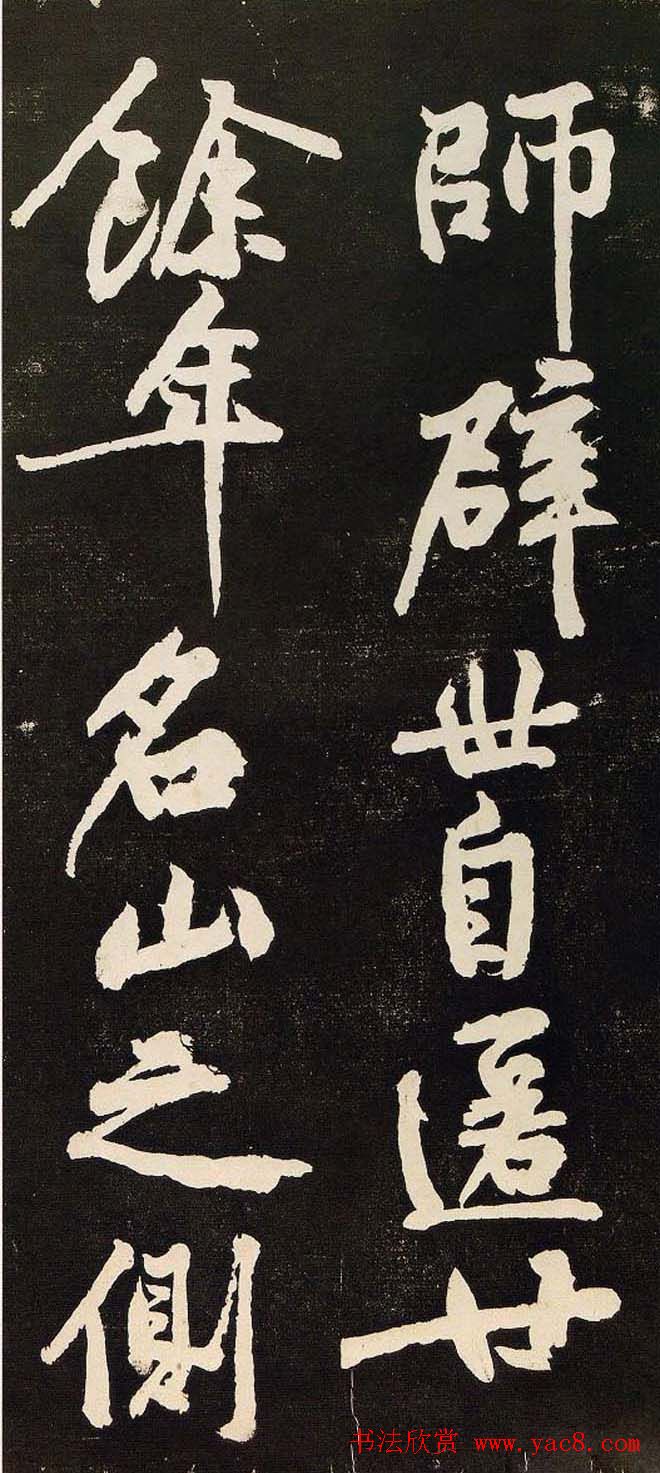 師辟世自匿廿
餘年名山之側
书法欣赏 www.yac8.com